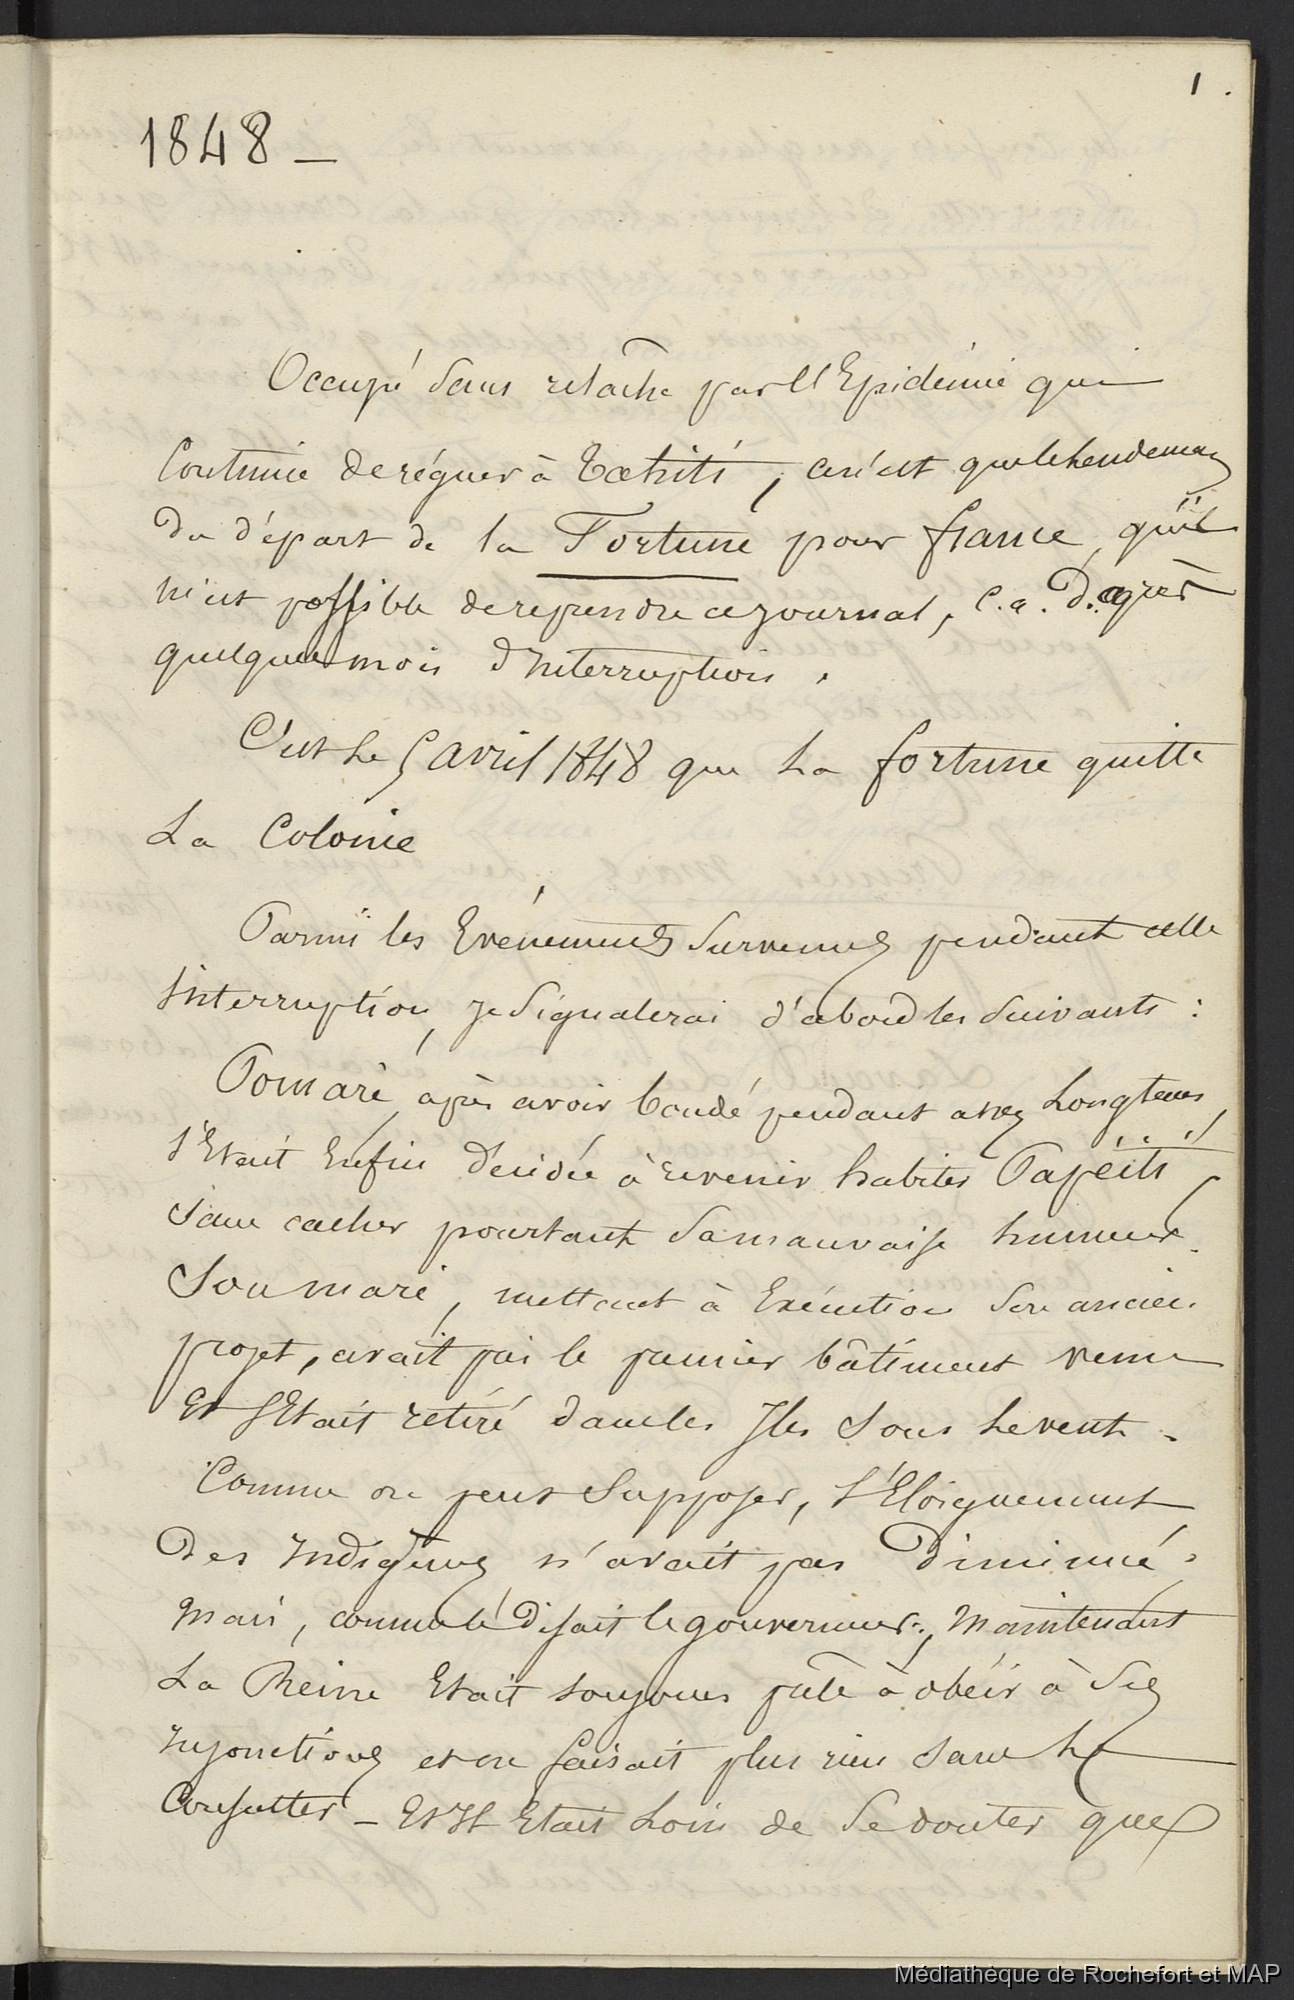 1.
1848 _
Occupé sans relâche par l'Epidémie qui
Continue de régner à Taïti, ce n'est que le lendemain
du départ de la Fortune pour france, qu'il
m'est possible de reprendre ce journal, c.a.d. après
quelques mois d'Interruption.
C'est le 5 avril 1848 que la fortune quitte
La Colonie
Parmi les Evénements survenus pendant cette
Interruption, je signalerai d'abord les suivants :
Pomaré, après avoir boudé pendant assez longtems,
s'Etait Enfin décidée à revenir habiter Papéïti,
sans cacher pourtant sa mauvaise humeur.
Son mari, mettant à Exécution son ancien
projet, avait pris le premier bâtiment venu
Et s'Etait retiré dans les Iles sous le vent.
Comme on peut supposer, l'Eloignement
Des Indigènes n'avait pas Diminué.
Mais, comme le Disait le gouverneur, Maintenant
La Reine Etait toujours prête à obéir à ses
Injonctions et on faisait plus rien sans la
Consulter _ Et Il Etait loin de se douter que
Médiathèque de Rochefort et MAP